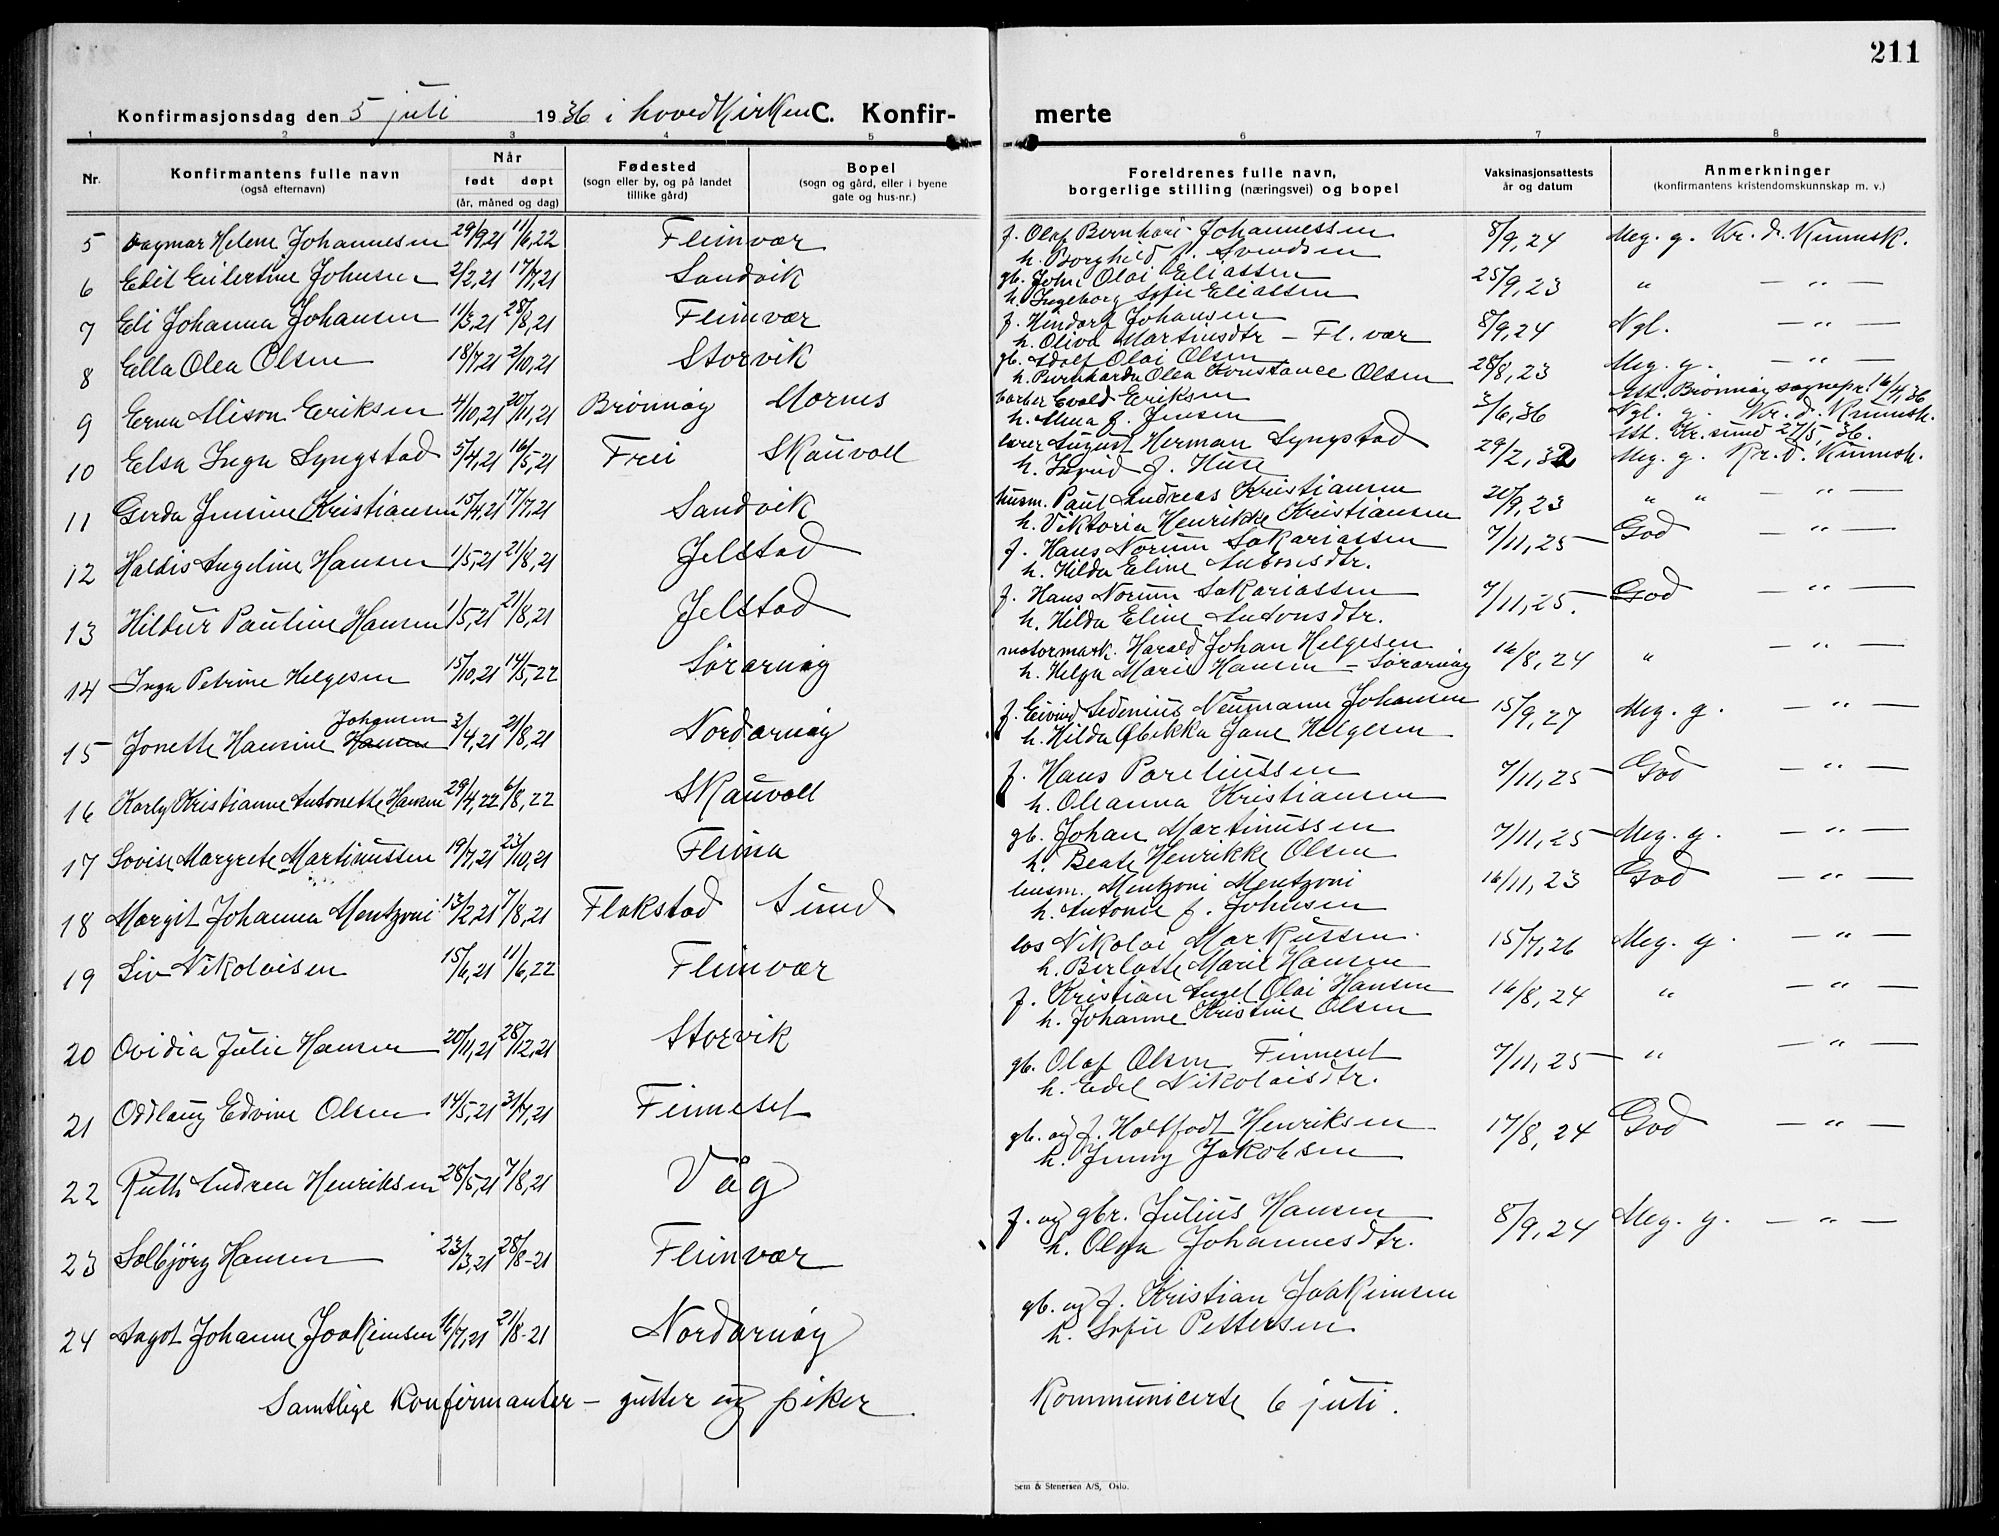 211
Konfirmasjonsdag den 5 juli 1936 i hovedkirken C. Konfir-
merte
1 2 3 4 5 6 7 8
Nr.
Konfirmantens fulle navn
(også efternavn)
Når
født døpt
(år, måned og dag)
Fødested
(sogn eller by, og på landet
tillike gård)
Bopel
(sogn og gård, eller i byene
gate og hus-nr.)
Foreldrenes fulle navn,
borgerlige stilling (næringsvei) og bopel
Vaksinasjonsattests
år og datum
Anmerkninger
(konfirmantens kristendomskunnskap m. v.)
5 Dagmar Helene Johannesen 29/9,21 11/6,22 Fleinvær f. Olaf Bernhard Johannessen 8/9,24 Meg. g. Kr. d. Kunnsk.
h. Borghild f. Svendsen
6 Edit Eilertine Johnsen 2/2,21 17/7,21 Sandvik gb. John Olai Eliassen 25/9,23 " — " —
h. Ingeborg Sofie Eliassen
7 Eli Johanna Johansen 11/3,21 28/8,21 Fleinvær f. Hindorf Johansen 8/9,24 Ngl. — " —
h. Oliva Martinsdtr — Fl. vær
8 Ella Olea Olsen 18/7,21 2/10,21 Storvik gb. Adolf Olai Olsen 28/8,23 Meg. g. — " —
h. Bernharda Olea Konstance Olsen
9 Erna Alison Eriksen 4/10,21 20/11,21 Brönnöy Mornes barber Evald Eriksen 3/6,36 Att. Brönnöy sognepr. 16/4,36
h. Alma f. Jensen Ngl. g. Kr. d. Kunnsk.
10 Elsa Inga Syngstad 5/4,21 16/5,21 Frei Skauvoll lærer August Herman Syngstad 29/2,32 Att. Kr.sund 27/5,36.
h. f. Huse Meg. g. Kr. d. Kunnsk.
11 Gerda Jensine Kristiansen 15/4,21 17/7,21 Sandvik husm. Paul Andreas Kristiansen 20/9,23 " " — " —
h. Viktoria Henrikke Kristiansen
12 Haldis Angeline Hansen 1/5,21 21/8,21 Jelstad f. Hans Norum Sakariassen 7/11,25 God — " —
h. Hilda Eline Antonsdtr.
13 Hildur Pauline Hansen 1/5,21 21/8,21 Jelstad f. Hans Norum Sakariassen 7/11,25. God — " —
h. Hilda Eline Antonsdtr.
14 Inga Petrine Helgesen 15/10,21 14/5,22 Sörarnöy motormask. Harald Johan Helgesen 16/8,24 " — " —
h. Helga Marie Hansen — Sörarnöy
15 Jonette Hansine Hansen Johansen 3/4,21 21/8,21 Nordarnöy f. Eivind Sedenius Neumann Johansen 15/9,27 Meg. g. — " —
h. Hilda Øbikka Jane Helgesen
16 Karly Kristianne Antonette Hansen 29/4,22 6/8,22 Skauvoll f. Hans Pareliussen 7/11,25 God — " —
h. Oleanna Kristiansen
17 Lovise Margrete Martinussen 19/7,21 23/10,21 Fleina gb. Johan Martinussen 7/11,25 Meg. g. — " —
h. Beate Henrikke Olsen
18 Margit Johanna Mentzoni 13/2,21 7/8,21 Flakstad Sund husm. Mentzoni Mentzoni 16/11,23 God — " —
h. Antonie f. Johnsen
19 Liv Nikolaisen 15/6,21 11/6,22 Fleinvær los Nikolai Markussen 15/7,26 Meg. g. — " —
h. Berlotte Marie Hansen
20 Ovidia Julie Hansen 20/11,21 28/12,21 Storvik f. Kristian Angel Olai Hansen 16/8,24 " — " —
h. Johanne Kristine Olsen
21 Oddlaug Edvine Olsen 14/5,21 31/7,21 Finneset gb. Olaf Olsen Finneset 7/11,25 " — " —
h. Edel Nikolaisdtr.
22 Ruth Andrea Henriksen 28/5,21 7/8,21 Våg gb. og f. Holtfodt Henriksen 17/8,24 God — " —
h. Jenny Jakobsen
23 Solbjörg Hansen 23/3,21 28/8-21 Fleinvær f. og gbr. Julius Hansen 8/9,24 Meg. g. — " —
h. Olga Johannesdtr.
24 Aagot Johanne Joakimsen 16/7,21 21/8-21 Nordarnöy gb. og f. Kristian Joakimsen
h. Sofie Pettersen
Samtlige konfirmanter — gutter og piker kommunicerte 6 juli.
Sem & Stenersen A/S, Oslo.